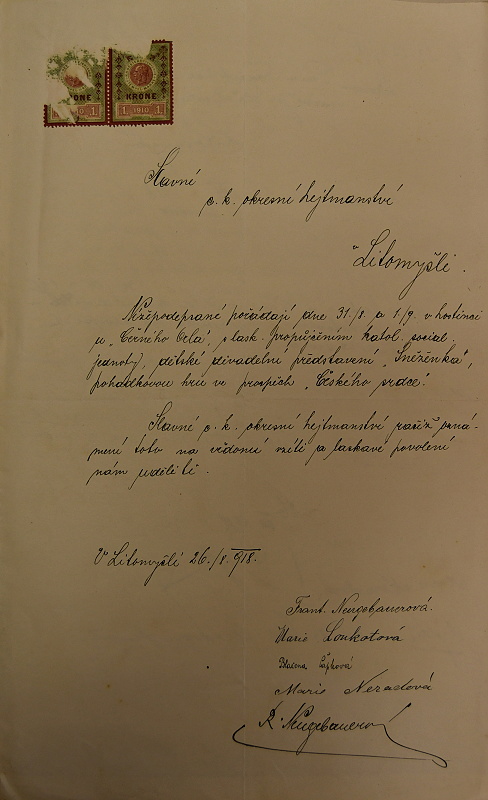 KRONE
1 1910 1
Slavné
c. k. okresní hejtmanství
v Litomyšli.
Nížepodepsané pořádají dne 31./8. a 1./9. v hostinci
u „Černého Orla“, s lask. propůjčením katol. social.
jednoty, dětské divadelní představení „Sněženka“,
pohádkovou hru ve prospěch „Českého srdce“.
Slavné c. k. okresní hejtmanství račiž ozná-
mení toto na vědomí vzíti a laskavé povolení
nám uděliti.
V Litomyšli 26./8. 918.
Frant. Neugebauerová.
Marie Loukotová
Čápková
Marie Neradová
R. Neugebauerov